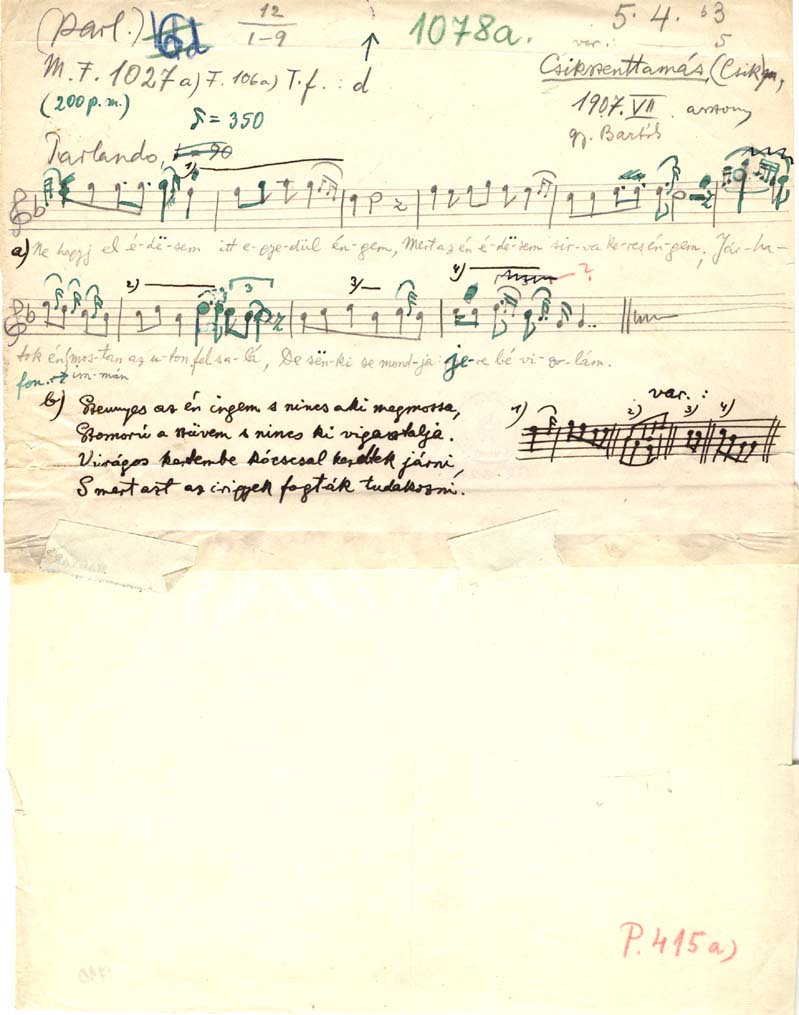 (Parl.) 12 1078a. 5. 4. b3
1-9 5
var.:
M. F. 1027 a) F. 106a) T. f. : d Csikszenttamás, (Csik)
(200 p. m.) ♪ = 350 1907. VII. asszony
gy. Bartók
Parlando, = 90
1)
a) Ne hagyj el é-dë-sem itt e-gye-dül én-gem, Mert az én é-dë-sem sir-va ke-res én-gem; Jár-ha-
2) 3 3) 4) ?
tok én mos-tan az u-ton fel s a-lá, De sën-ki se mond-ja: je-re bé vi-o-lám.
fon. im-már
b) Szennyes az én ingem s nincs aki megmossa, var.:
Szomorú a szüvem s nincs ki vigasztalja. 1) 2) 3) 4)
Virágos kertembe kócscsal kezdtek járni,
S mert azt az irigyek fogták tudakozni.
P. 415 a)